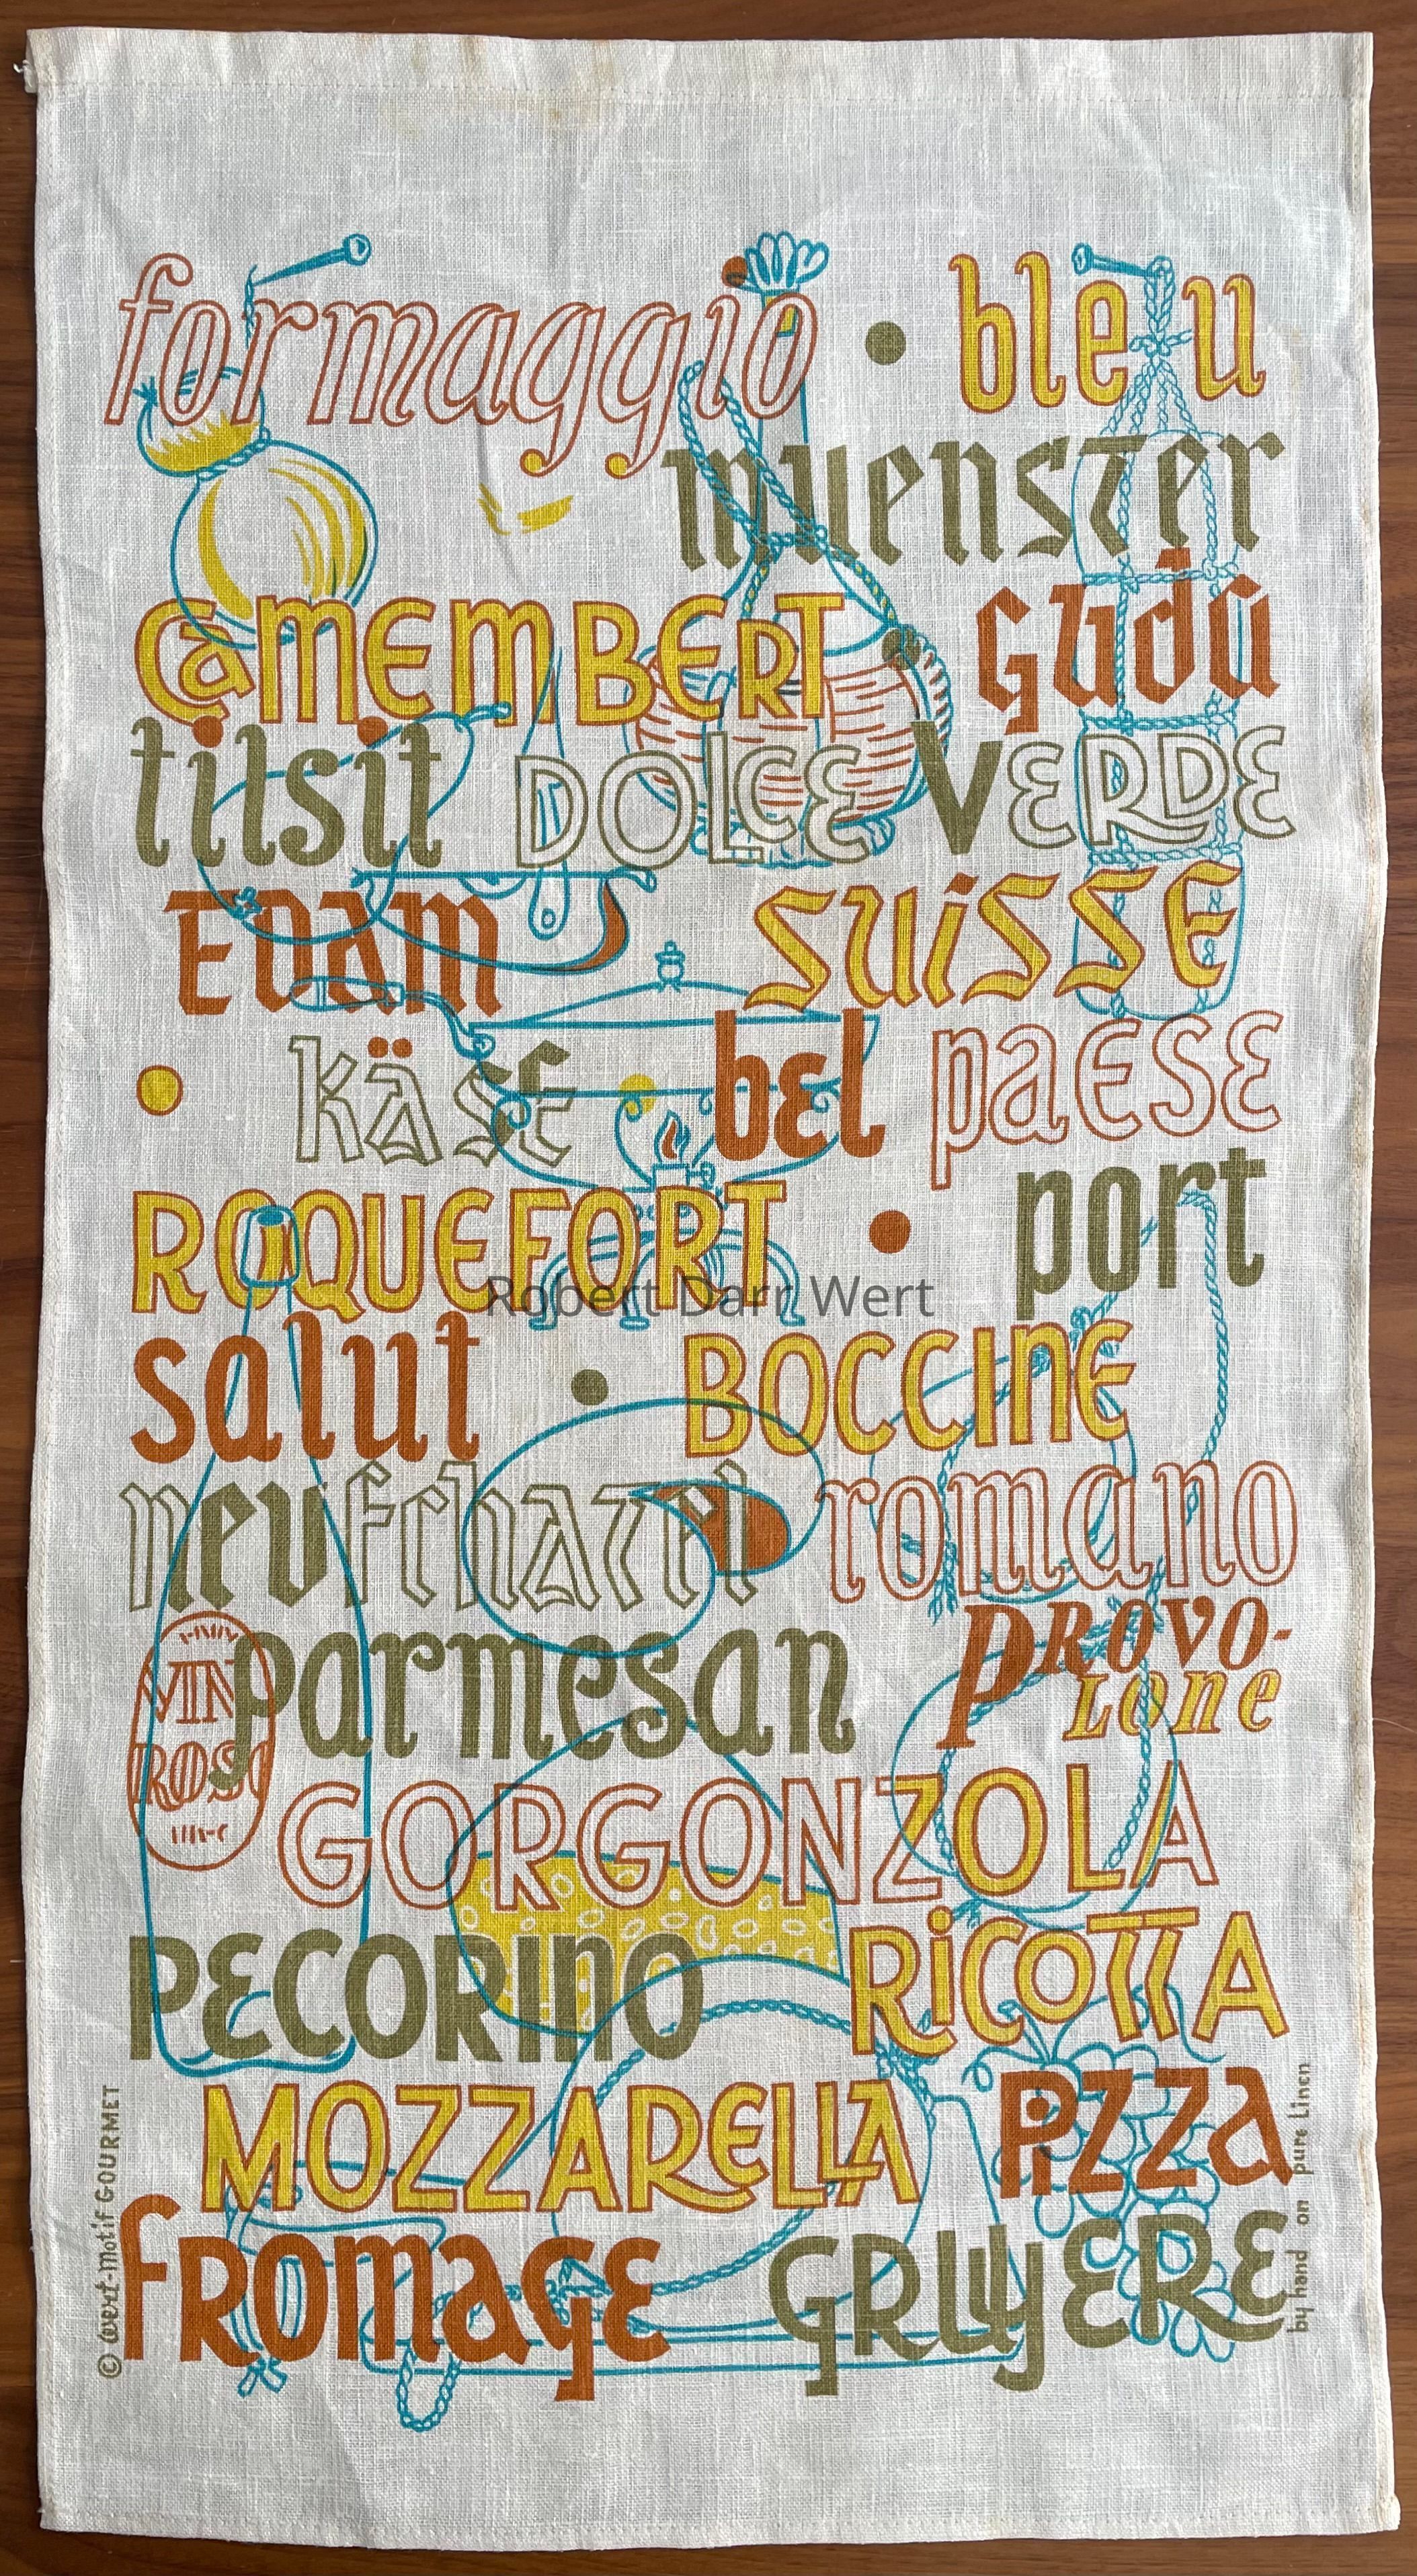 formaggio • bleu
muenster
CaMEMBERT guda
tilsit DOLCE VERDE
EDAM SUiSSE
• KÄSE bel paESE
ROQUEFORT • port
Robert Darr Wert
salut • BOCCINE
neufchatel romano
PROVO-
parmesan LOne
VIN
ROSO
GORGONZOLA
PECORINO RiCOTTA
MOZZARELLA PiZZa
fROmaGE GRUYERE
© wert-motif GOURMET
by hand on pure Linen